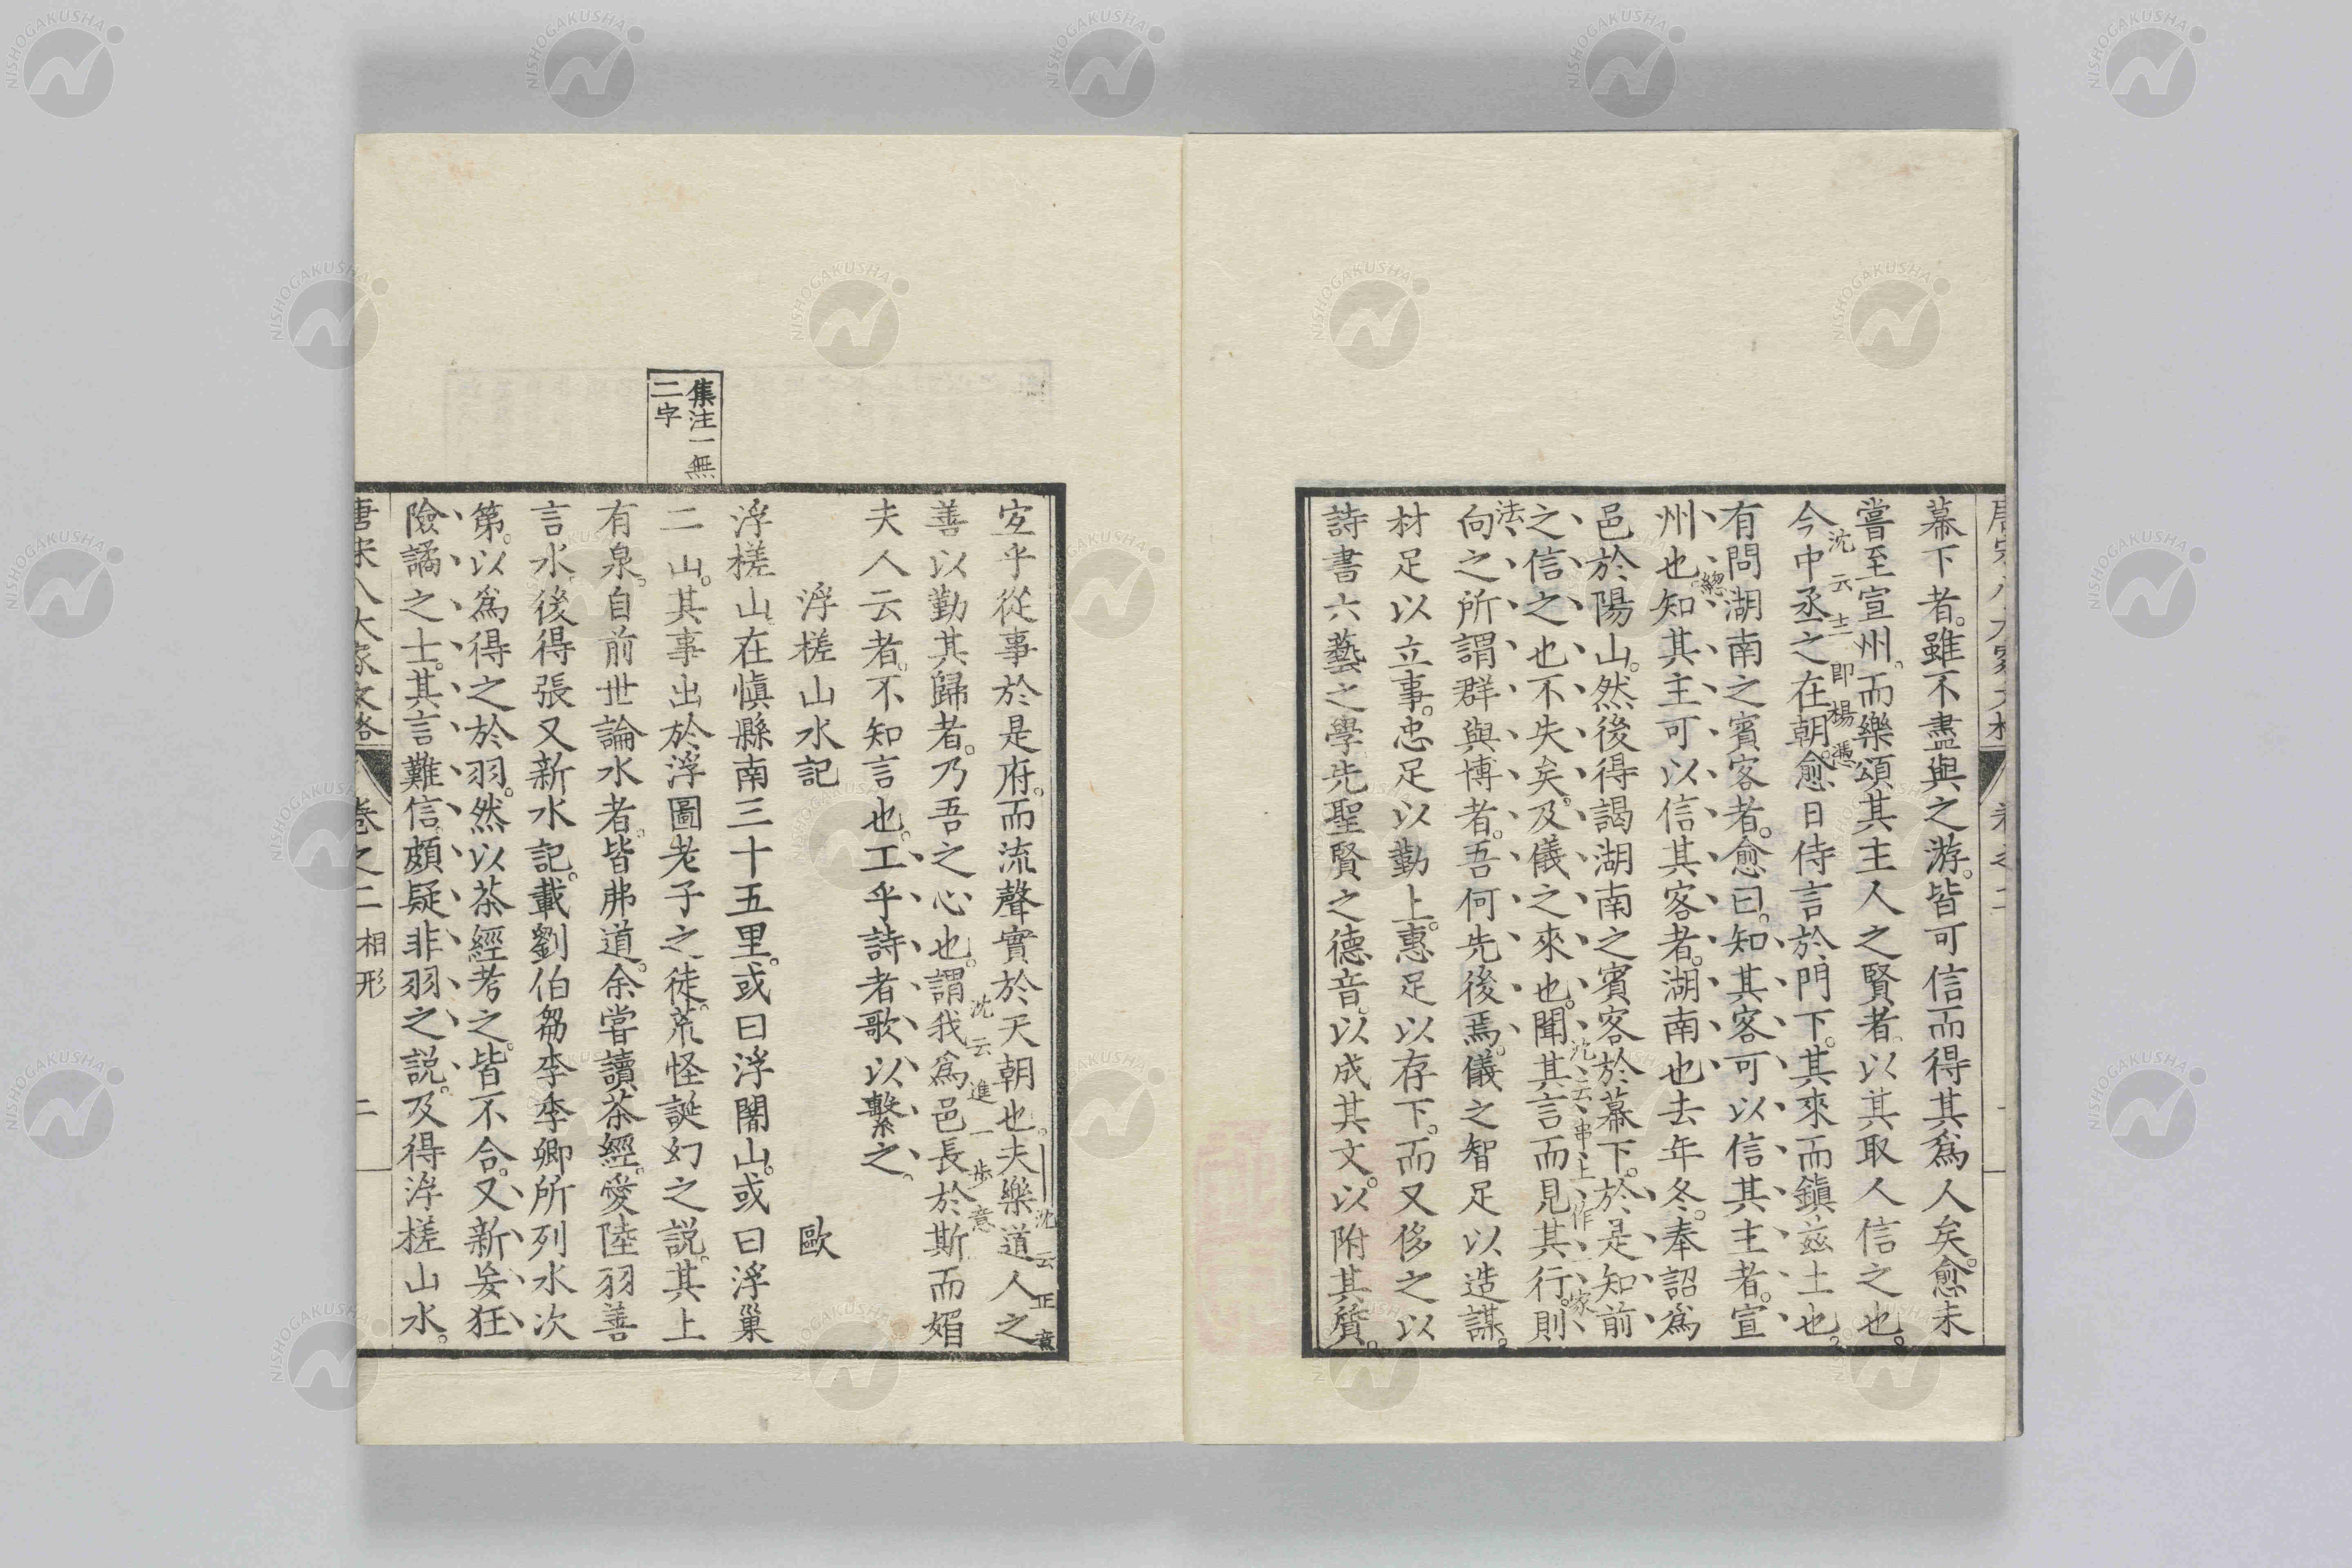 幕下者。雖不盡與之游。皆可信而得其爲人矣。愈未
嘗至宣州。而樂頌其主人之賢者。以其取人信之也。
沈云主即楊憑
今中丞之在朝。愈日侍言於門下。其來而鎮茲土也。
有問湖南之賓客者。愈曰。知其客可以信其主者。宣
總
州也。知其主可以信其客者。湖南也。去年冬。奉詔爲
邑於陽山。然後得謁湖南之賓客於幕下。於是知前
沈云串上作一家
之信之也不失矣。及儀之來也。聞其言而見其行。則
法
向之所謂群與博者。吾何先後焉。儀之智足以造謀。
材足以立事。忠足以勤上。惠足以存下。而又侈之以
詩書六藝之學先聖賢之德音。以成其文。以附其質。
宐乎從事於是府。而流聲實於天朝也。夫樂道人之
沈云正意
善以勤其歸者。乃吾之心也。謂我爲邑長於斯而媚
沈云進一步意
夫人云者。不知言也。工乎詩者歌以繫之。
浮槎山水記 歐
集注一無
二字
浮槎山在愼縣南三十五里。或曰浮闍山。或曰浮巢
二山。其事出於浮圖老子之徒。荒怪誕幻之説。其上
有泉。自前世論水者。皆弗道。余嘗讀茶經。愛陸羽善
言水。後得張又新水記。載劉伯芻李季卿所列水次
第。以爲得之於羽。然以茶經考之。皆不合。又新妄狂
險譎之士。其言難信。頗疑非羽之説。及得浮槎山水。
唐宋八大家文格 卷之二 相形 二
NISHOGAKUSHA